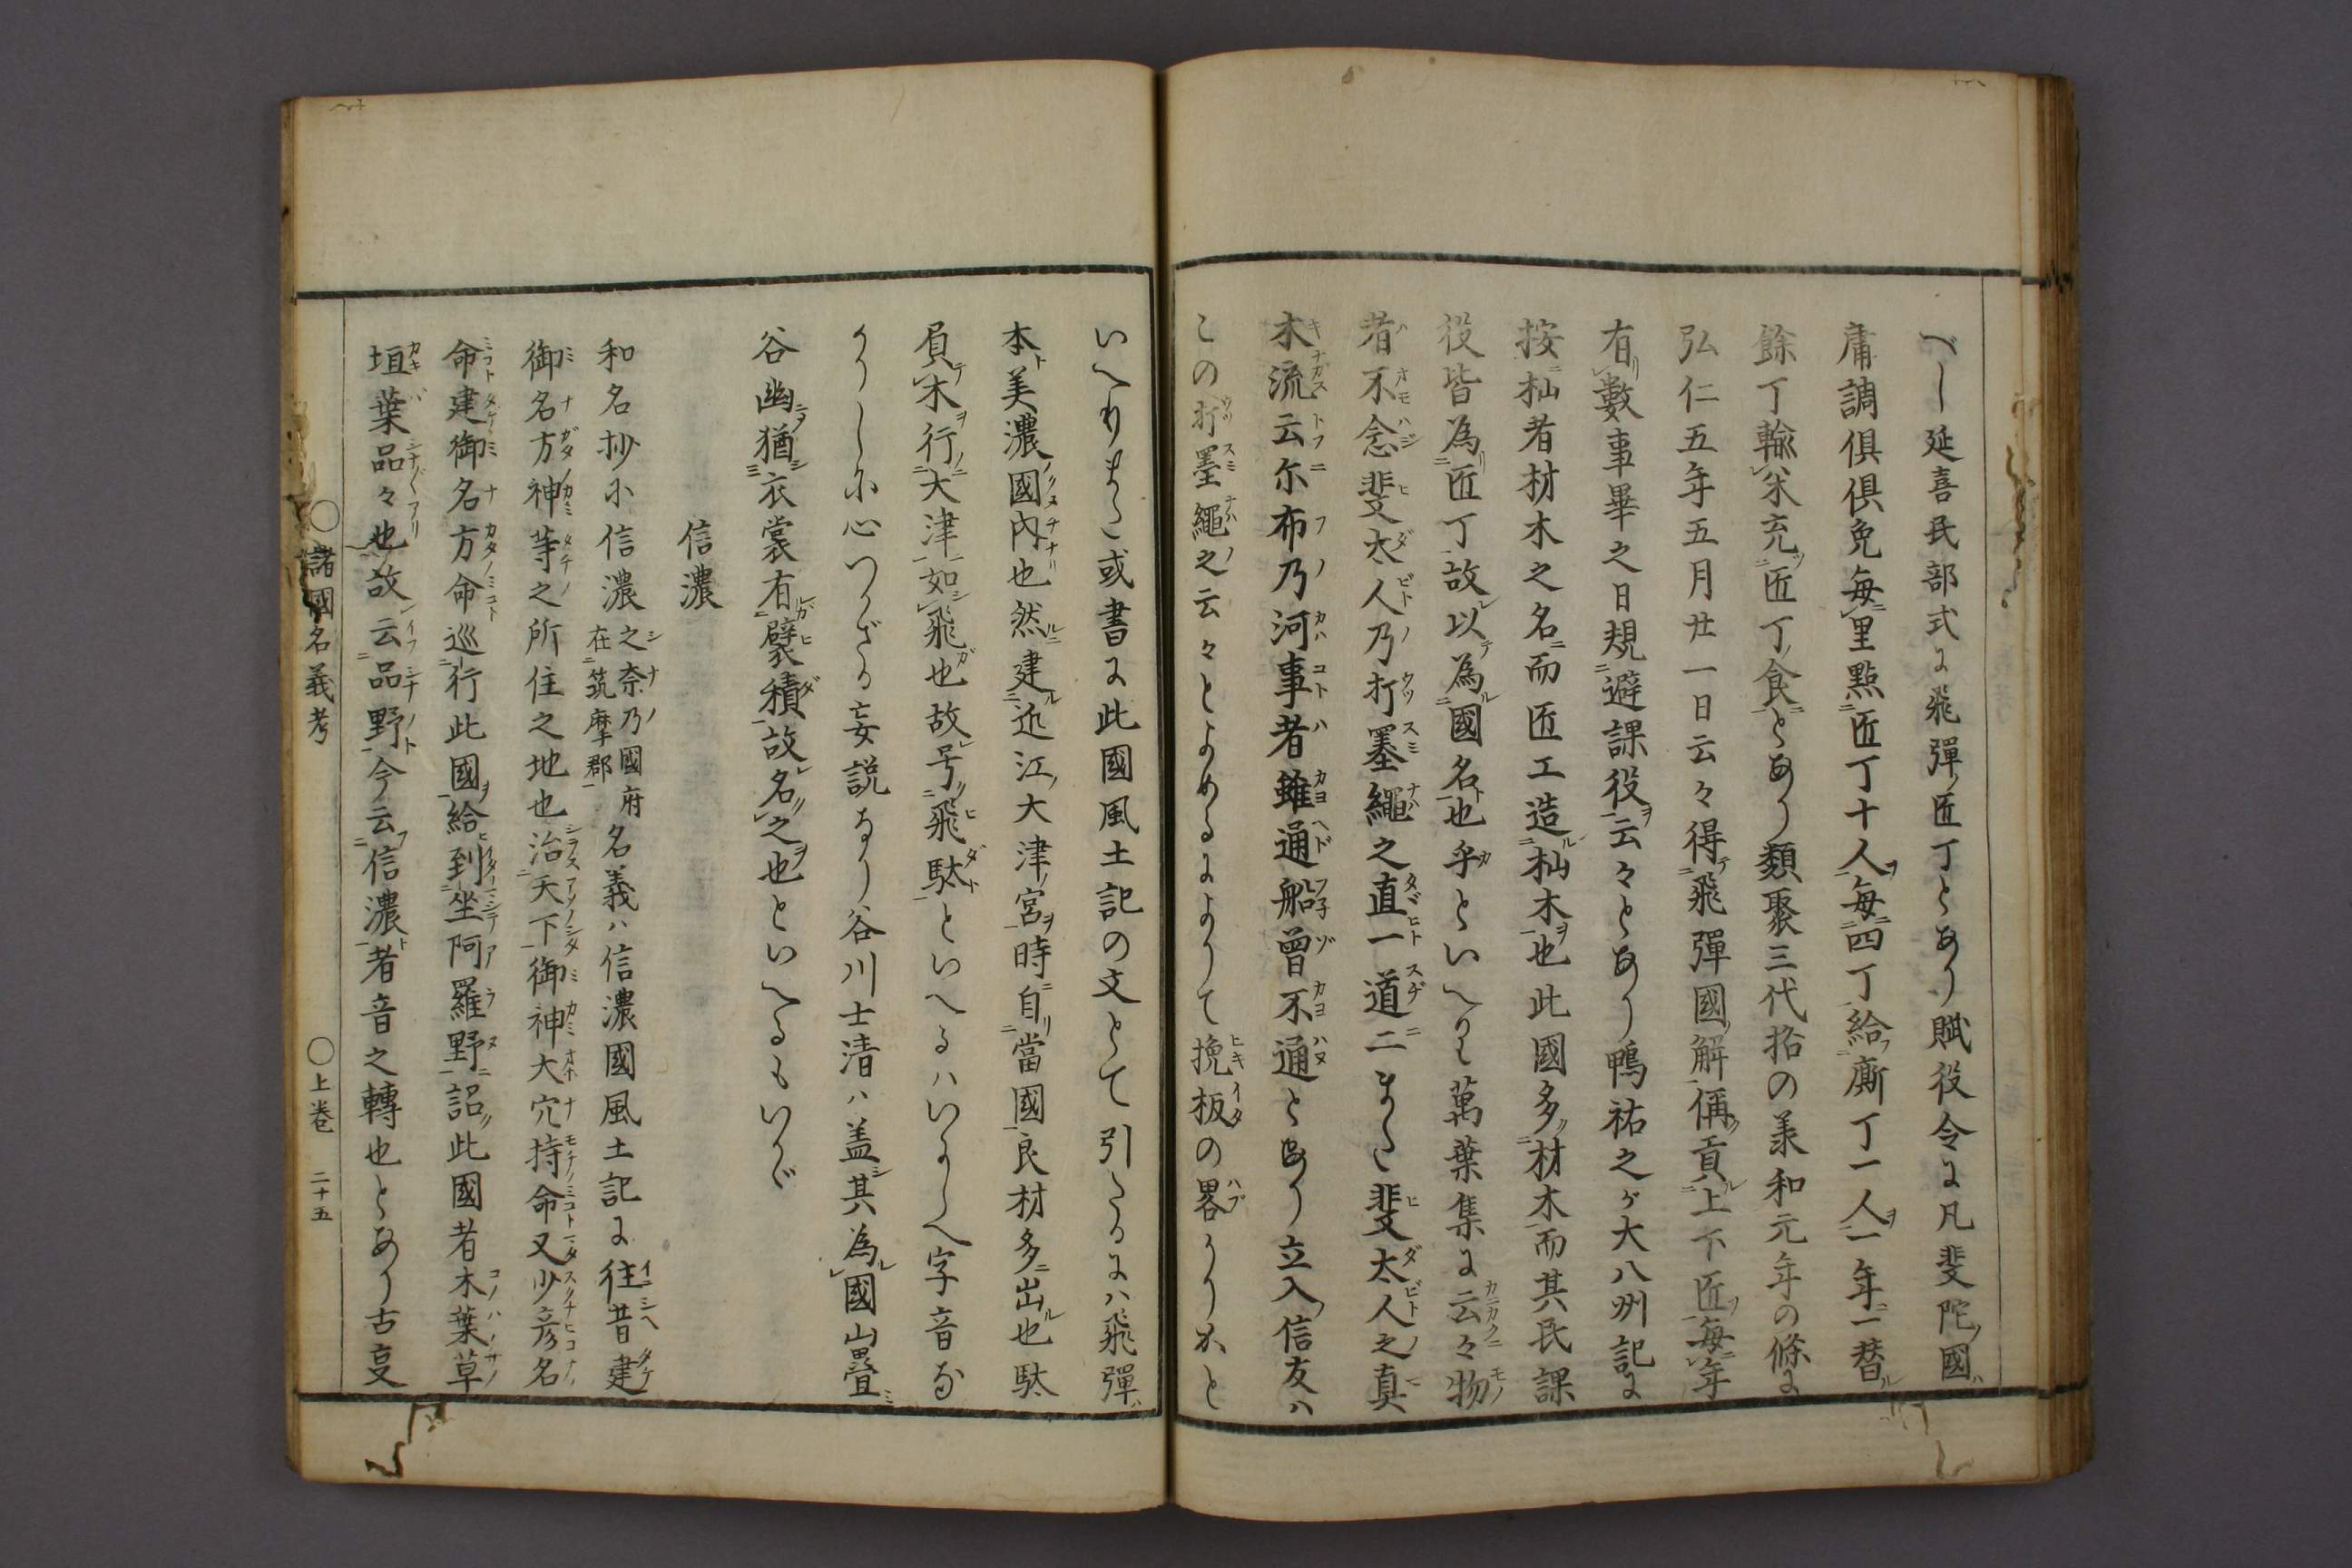 べし延喜民部式に飛彈ノ匠丁とあり賦役令に凡斐陀ノ國ハ
庸調倶俱免毎里點匠丁十人ヲ毎四丁給廝丁一人ヲ一年一替ル
餘丁輸米充匠丁食とあり類聚三代格の美和元年の條に
弘仁五年五月廿一日云々得飛彈國解偁貢上下匠毎年
有數事畢之日規避課役ヲ云々とあり鴨祐之ガ大八州記に
按杣者材木之名而匠工造杣木ヲ也此國多材木而其民課
役皆為匠丁故以為國名也乎といへりも萬葉集に云々物
者不念斐太人乃打墨繩之直一道二また斐太人之真
木流云尓布乃河事者雖通船曾不通とあり立入信友ハ
この打墨繩之云々とよめるによりて挽板の畧うりかと
いへりまた或書に此國風土記の文とて引たるにハ飛彈ハ
本美濃國内也然建近江ノ大津ノ宮ヲ時自當國良材多出也駄
負木ヲ行大津如飛也故号飛駄といへるハいにしへ字音な
りし小心つかざる妄説なり谷川士清ハ盖其為國山疊
谷幽猶衣裳有襞積故名之也といへるもいかゞ
信濃
和名抄小信濃之奈乃國府在筑摩郡名義ハ信濃國風土記に往昔建
御名方神等之所住之地也治天下御神大穴持命又少彦名
命建御名方命巡行此國ヲ給到坐阿羅野詔此國者木葉草
垣葉品々也故云品野今云信濃者音之轉也とあり古夏
○諸國名義考 ○上卷 二十五